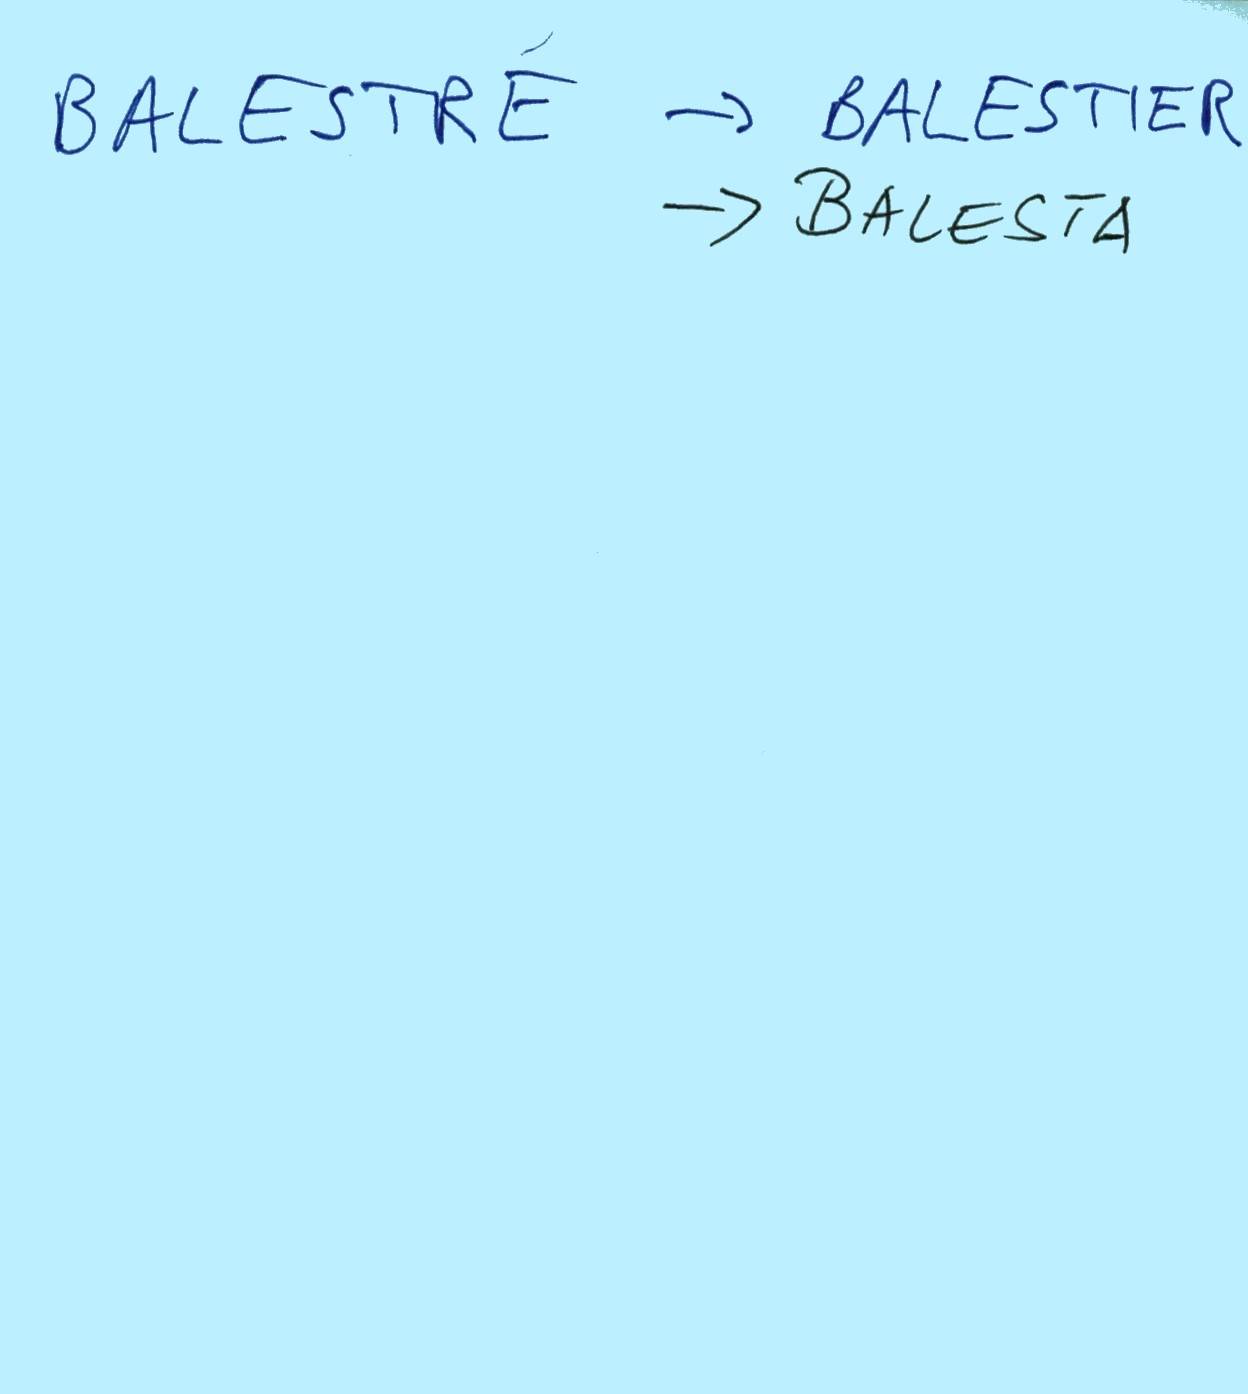 BALESTRÉ → BALESTIER
→ BALESTA